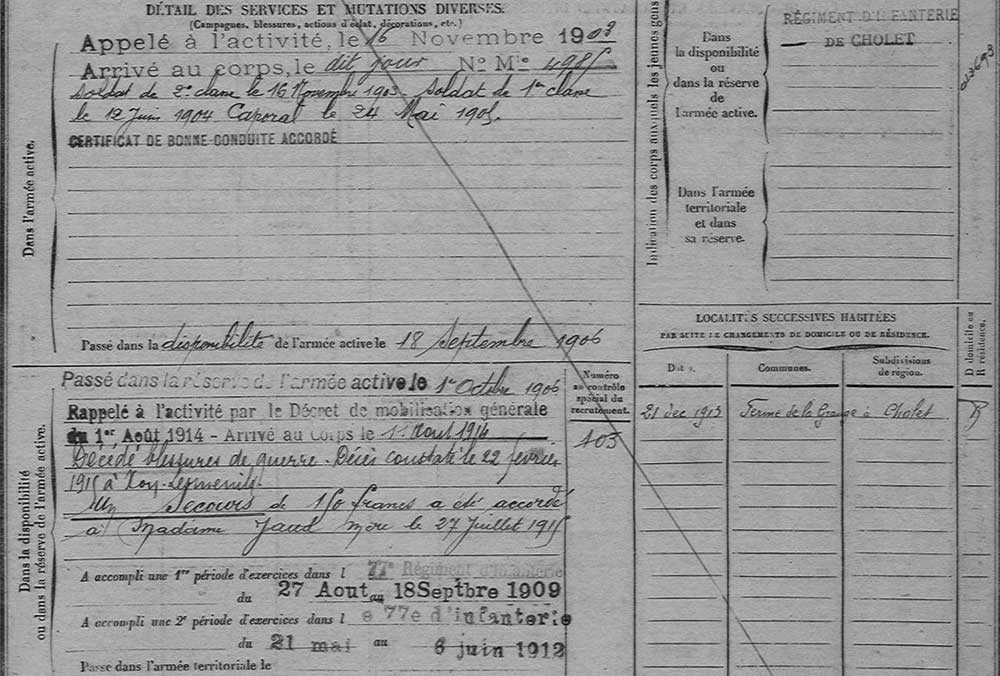 DÉTAIL DES SERVICES ET MUTATIONS DIVERSES.
(Campagnes, blessures, actions d'éclat, décorations, etc.)
Appelé à l'activité, le 16 Novembre 1903
Arrivé au corps, le dit jour N° Mle
Soldat de 2e classe le 16 Novembre 1903 - Soldat de 1re classe
le 12 Juin 1904 Caporal le 24 Mai 1905.
CERTIFICAT DE BONNE CONDUITE ACCORDÉ
Dans l'armée active.
Passé dans la disponibilité de l'armée active le 18 Septembre 1906
Passé dans la réserve de l'armée active le 1er Octobre 1906
Rappelé à l'activité par le Décret de mobilisation générale
du 1er Août 1914 - Arrivé au Corps le
Décédé blessures de guerre. Décès constaté le 22 février
1915 à
Un Secours de 150 francs a été accordé
à Madame Jaud mère le 27 Juillet 1915
A accompli une 1re période d'exercices dans l 77e Régiment d'Infanterie
du 27 Aout au 18 Septbre 1909
A accompli une 2e période d'exercices dans l e 77e d'infanterie
du 21 mai au 6 juin 1912
Passé dans l'armée territoriale le
Dans la disponibilité
ou dans la réserve de l'armée active.
Numéro
au contrôle
spécial du
recrutement.
103
Indication des corps auxquels les jeunes gens
Dans
la disponibilité
ou
dans la réserve
de
l'armée active.
RÉGIMENT D'INFANTERIE
DE CHOLET
Dans l'armée
territoriale
et dans
sa réserve.
LOCALITÉS SUCCESSIVES HABITÉES
PAR SUITE DE CHANGEMENTS DE DOMICILE OU DE RÉSIDENCE.
Dates.
Communes.
Subdivisions
de région.
D domicile ou
R résidence.
21 Dec 1913 Ferme de la Grange à Cholet